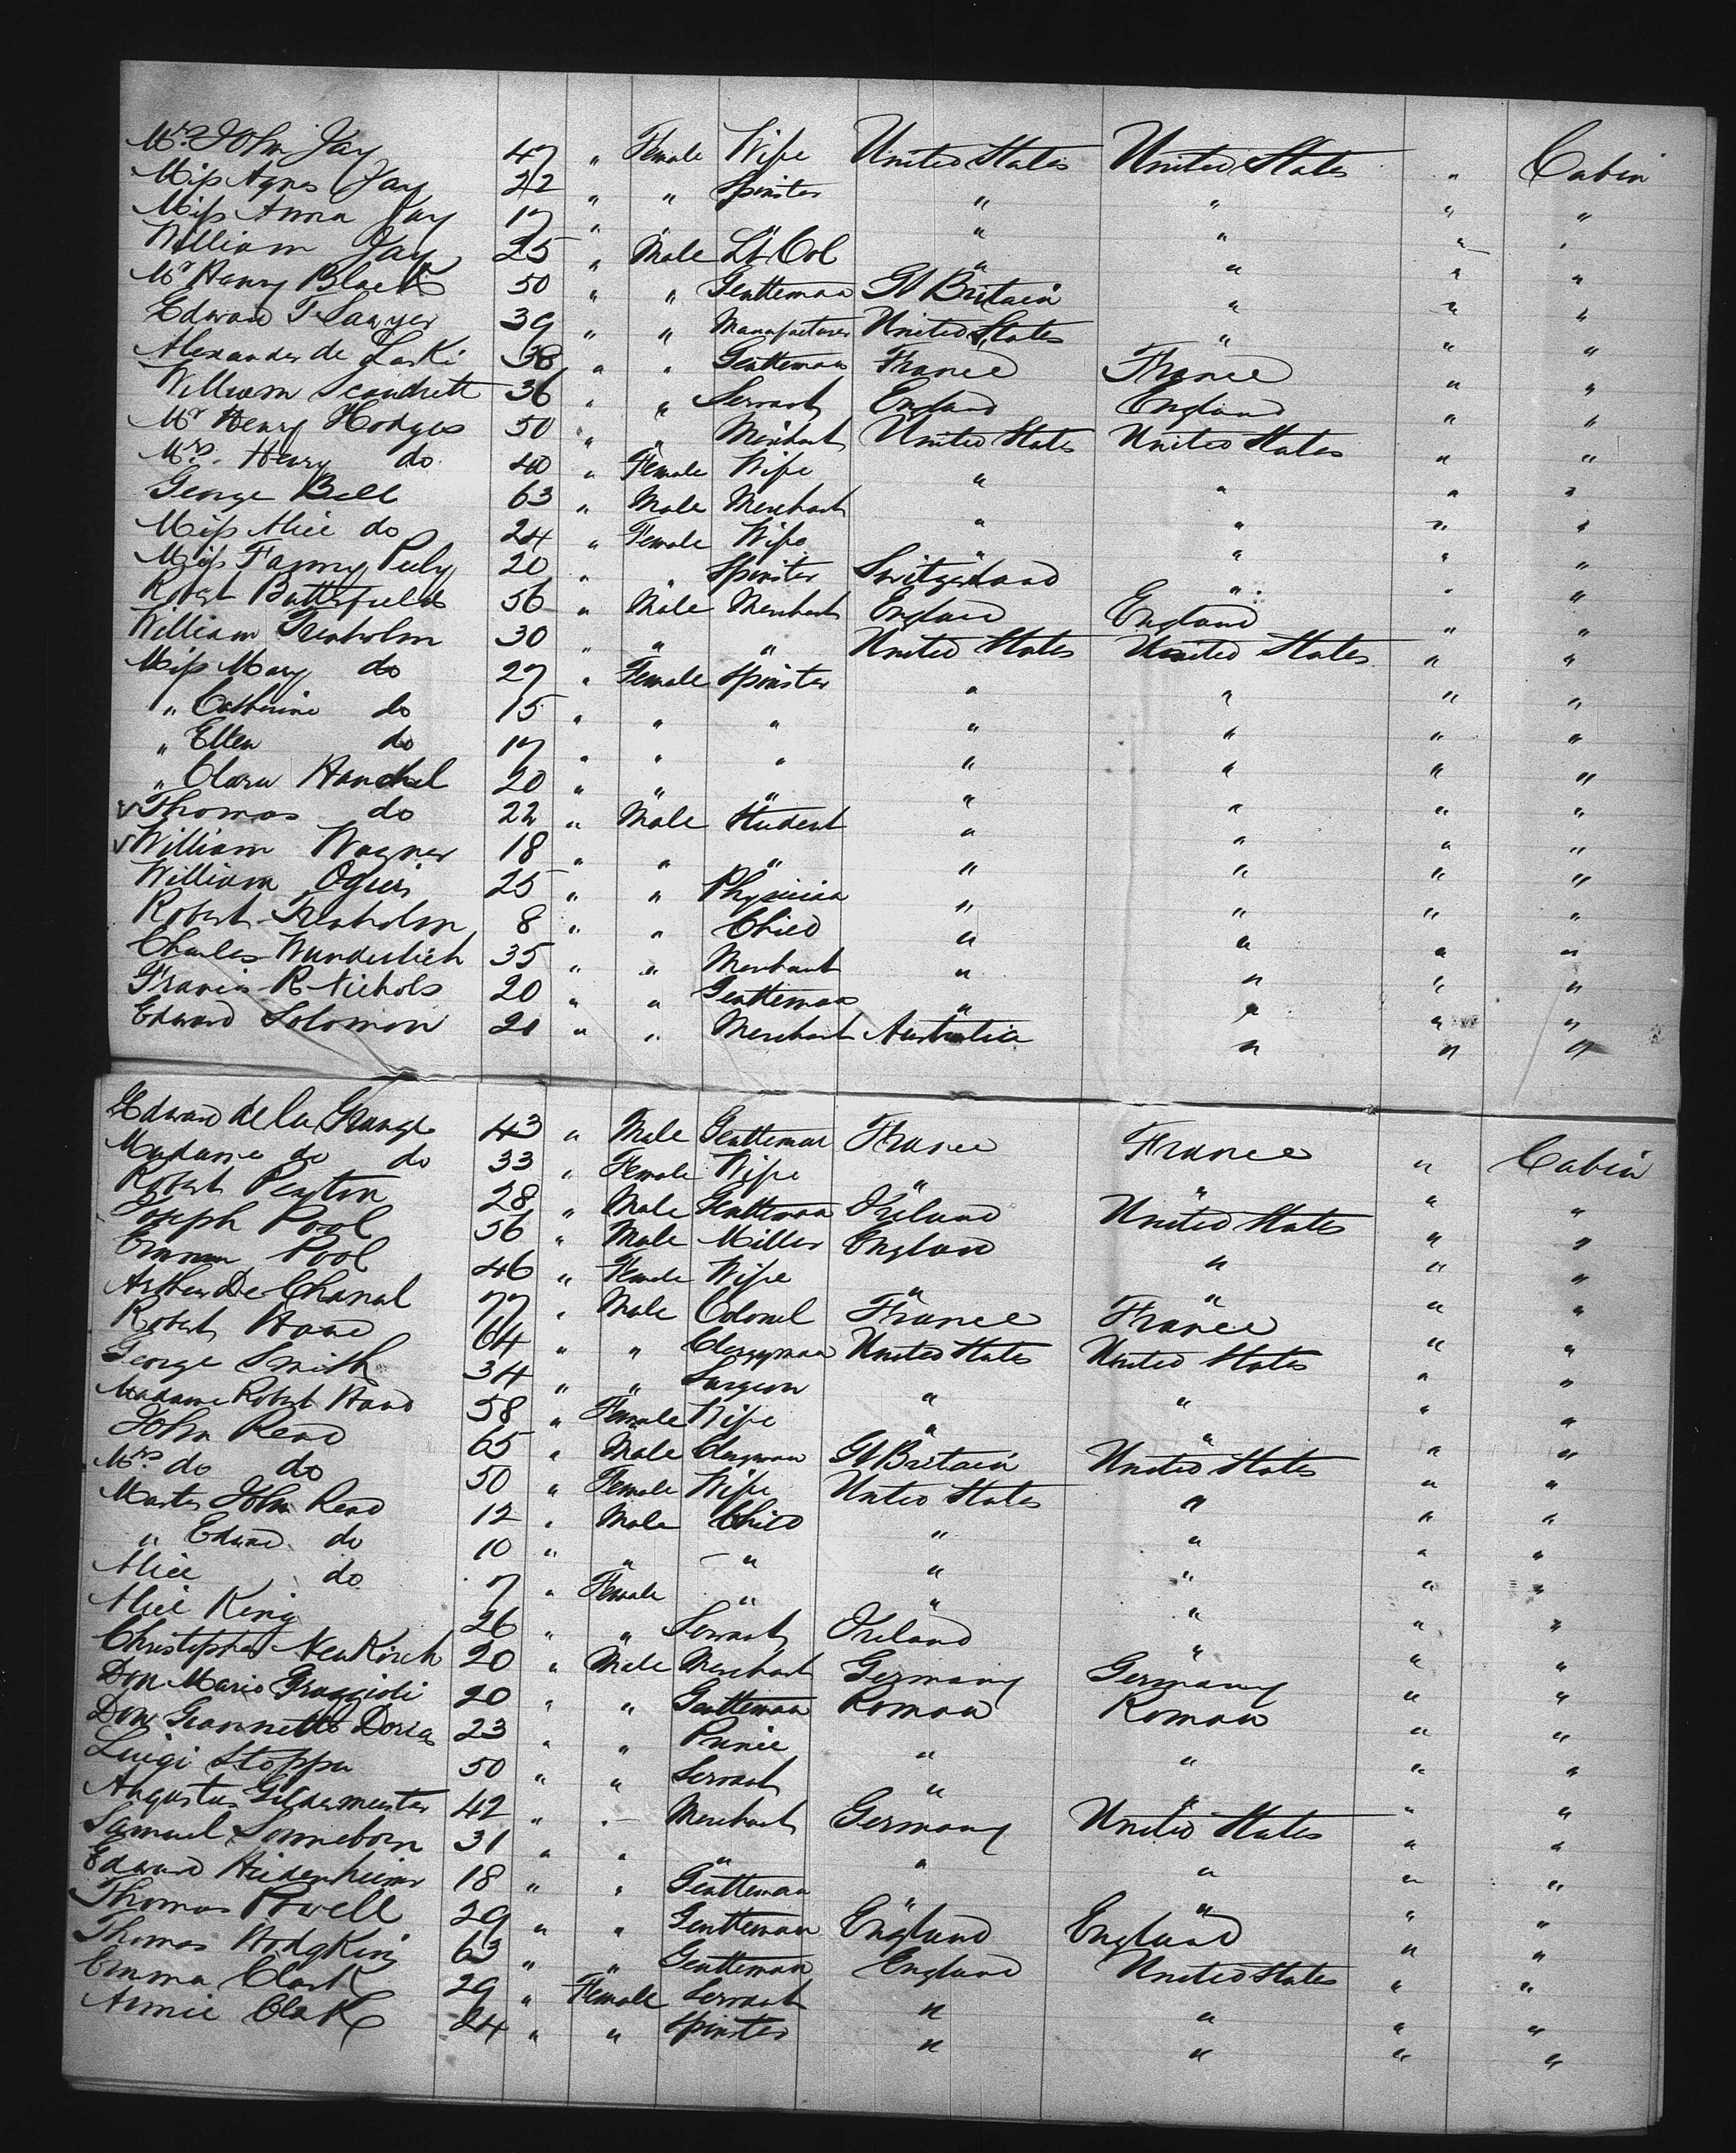 Mrs John Jay 47 " Female Wife United States United States " Cabin
Miss Agnes Jay 22 " " Spinster " " " "
Miss Anna Jay 17 " " " " " " "
William Jay 25 " Male Lt Col " " " "
Mr Henry Black 50 " " Gentleman Gt Britain " " "
Edward T Sawyer 39 " " Manufacturer United States " " "
Alexander de Laski 38 " " Gentleman France France " "
William Scandrett 36 " " Servant England England " "
Mr Henry Hodges 50 " " Merchant United States United States " "
Mrs. Henry do 40 " Female Wife " " " "
George Bell 63 " Male Merchant " " " "
Miss Alice do 24 " Female Wife " " " "
Miss Fanny 20 " " Spinster Switzerland " " "
Robert Butterfield 56 " Male Merchant England England " "
William Trenholm 30 " " " United States United States " "
Miss Mary do 27 " Female Spinster " " " "
" Catherine do 15 " " " " " " "
" Ellen do 17 " " " " " " "
" Clara Hanckel 20 " " " " " " "
Thomas do 22 " Male Student " " " "
William Wagner 18 " " " " " " "
William Ogier 25 " " Physician " " " "
Robert Trenholm 8 " " Child " " " "
Charles Wunderlich 35 " " Merchant " " " "
Francis R Nichols 20 " " Gentleman " " " "
Edward Solomon 21 " " Merchant Australia " " "
Edward de la Grange 43 " Male Gentleman France France " Cabin
Madame do do 33 " Female Wife " " " "
Robert Peyton 28 " Male Gentleman Ireland United States " "
Joseph Pool 56 " Male Miller England " " "
Emma Pool 46 " Female Wife " " " "
Arthur De Chanal 77 " Male Colonel France France " "
Robert 64 " " Clergyman United States United States " "
George Smith 34 " " Surgeon " " " "
Madame Robert 58 " Female Wife " " " "
John Read 65 " Male Clergyman Gt Britain United States " "
Mrs do do 50 " Female Wife United States " " "
Master John Read 12 " Male Child " " " "
" Edward do 10 " " " " " " "
Alice do 7 " Female " " " " "
Alice King 26 " " Servant Ireland " " "
Christopher NewKirch 20 " Male Merchant Germany Germany " "
Don Mario 20 " " Gentleman Roman Roman " "
Don Giannetto Doria 23 " " Prince " " " "
Luigi Stoppa 50 " " Servant " " " "
Augustus Gildermeister 42 " " Merchant Germany United States " "
Samuel Sonneborn 31 " " " " " " "
Edward Heidenheimer 18 " " Gentleman " " " "
Thomas Powell 29 " " Gentleman England England " "
Thomas Hodgking 63 " " Gentleman England United States " "
Emma Clark 29 " Female Servant " " " "
Annie Clark 24 " " Spinster " " " "